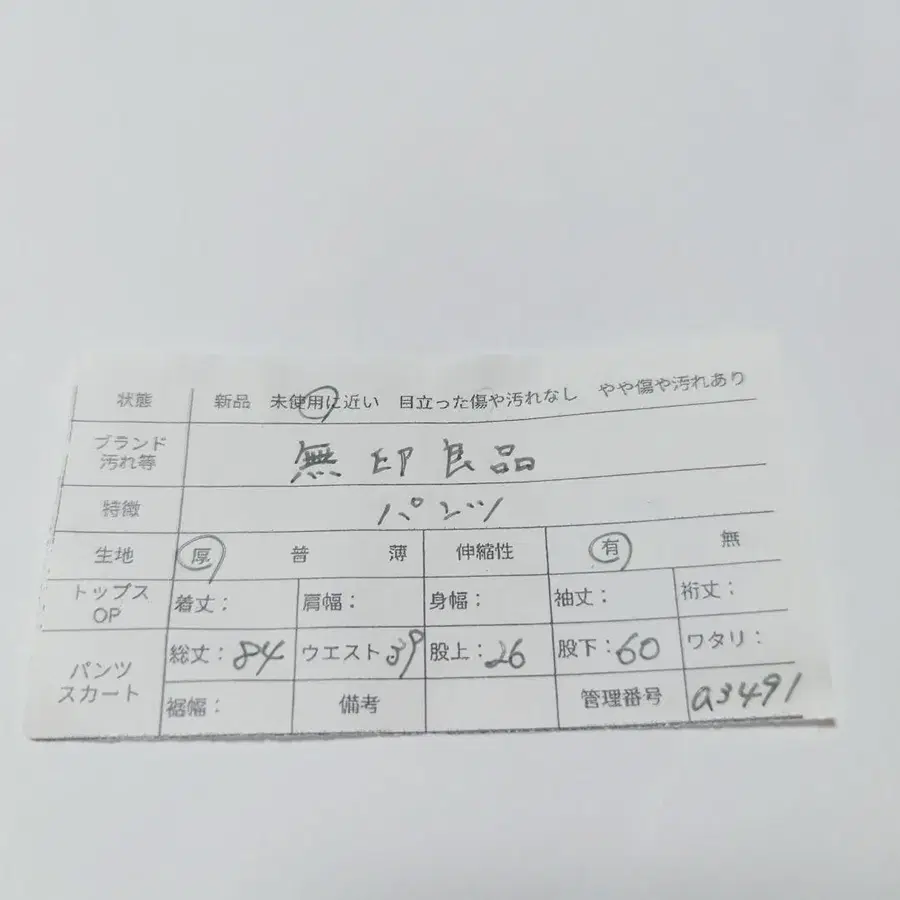 状態 新品 未使用に近い 目立った傷や汚れなし やや傷や汚れあり
ブランド
汚れ等 無印良品
特徴 パンツ
生地 厚 普 薄 伸縮性 有 無
トップス
OP 着丈: 肩幅: 身幅: 袖丈: 裄丈:
パンツ
スカート 総丈:84 ウエスト39 股上:26 股下:60 ワタリ:
裾幅: 備考 管理番号 a3491